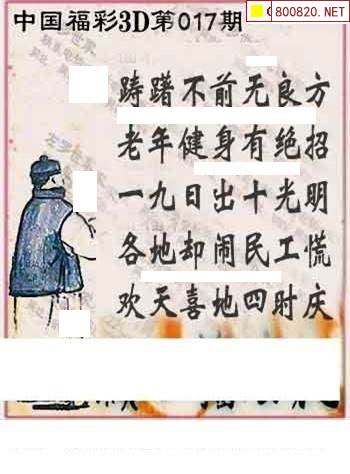 中国福彩3D第017期
800820.NET
踌躇不前无良方
老年健身有绝招
一九日出十光明
各地却闹民工慌
欢天喜地四时庆